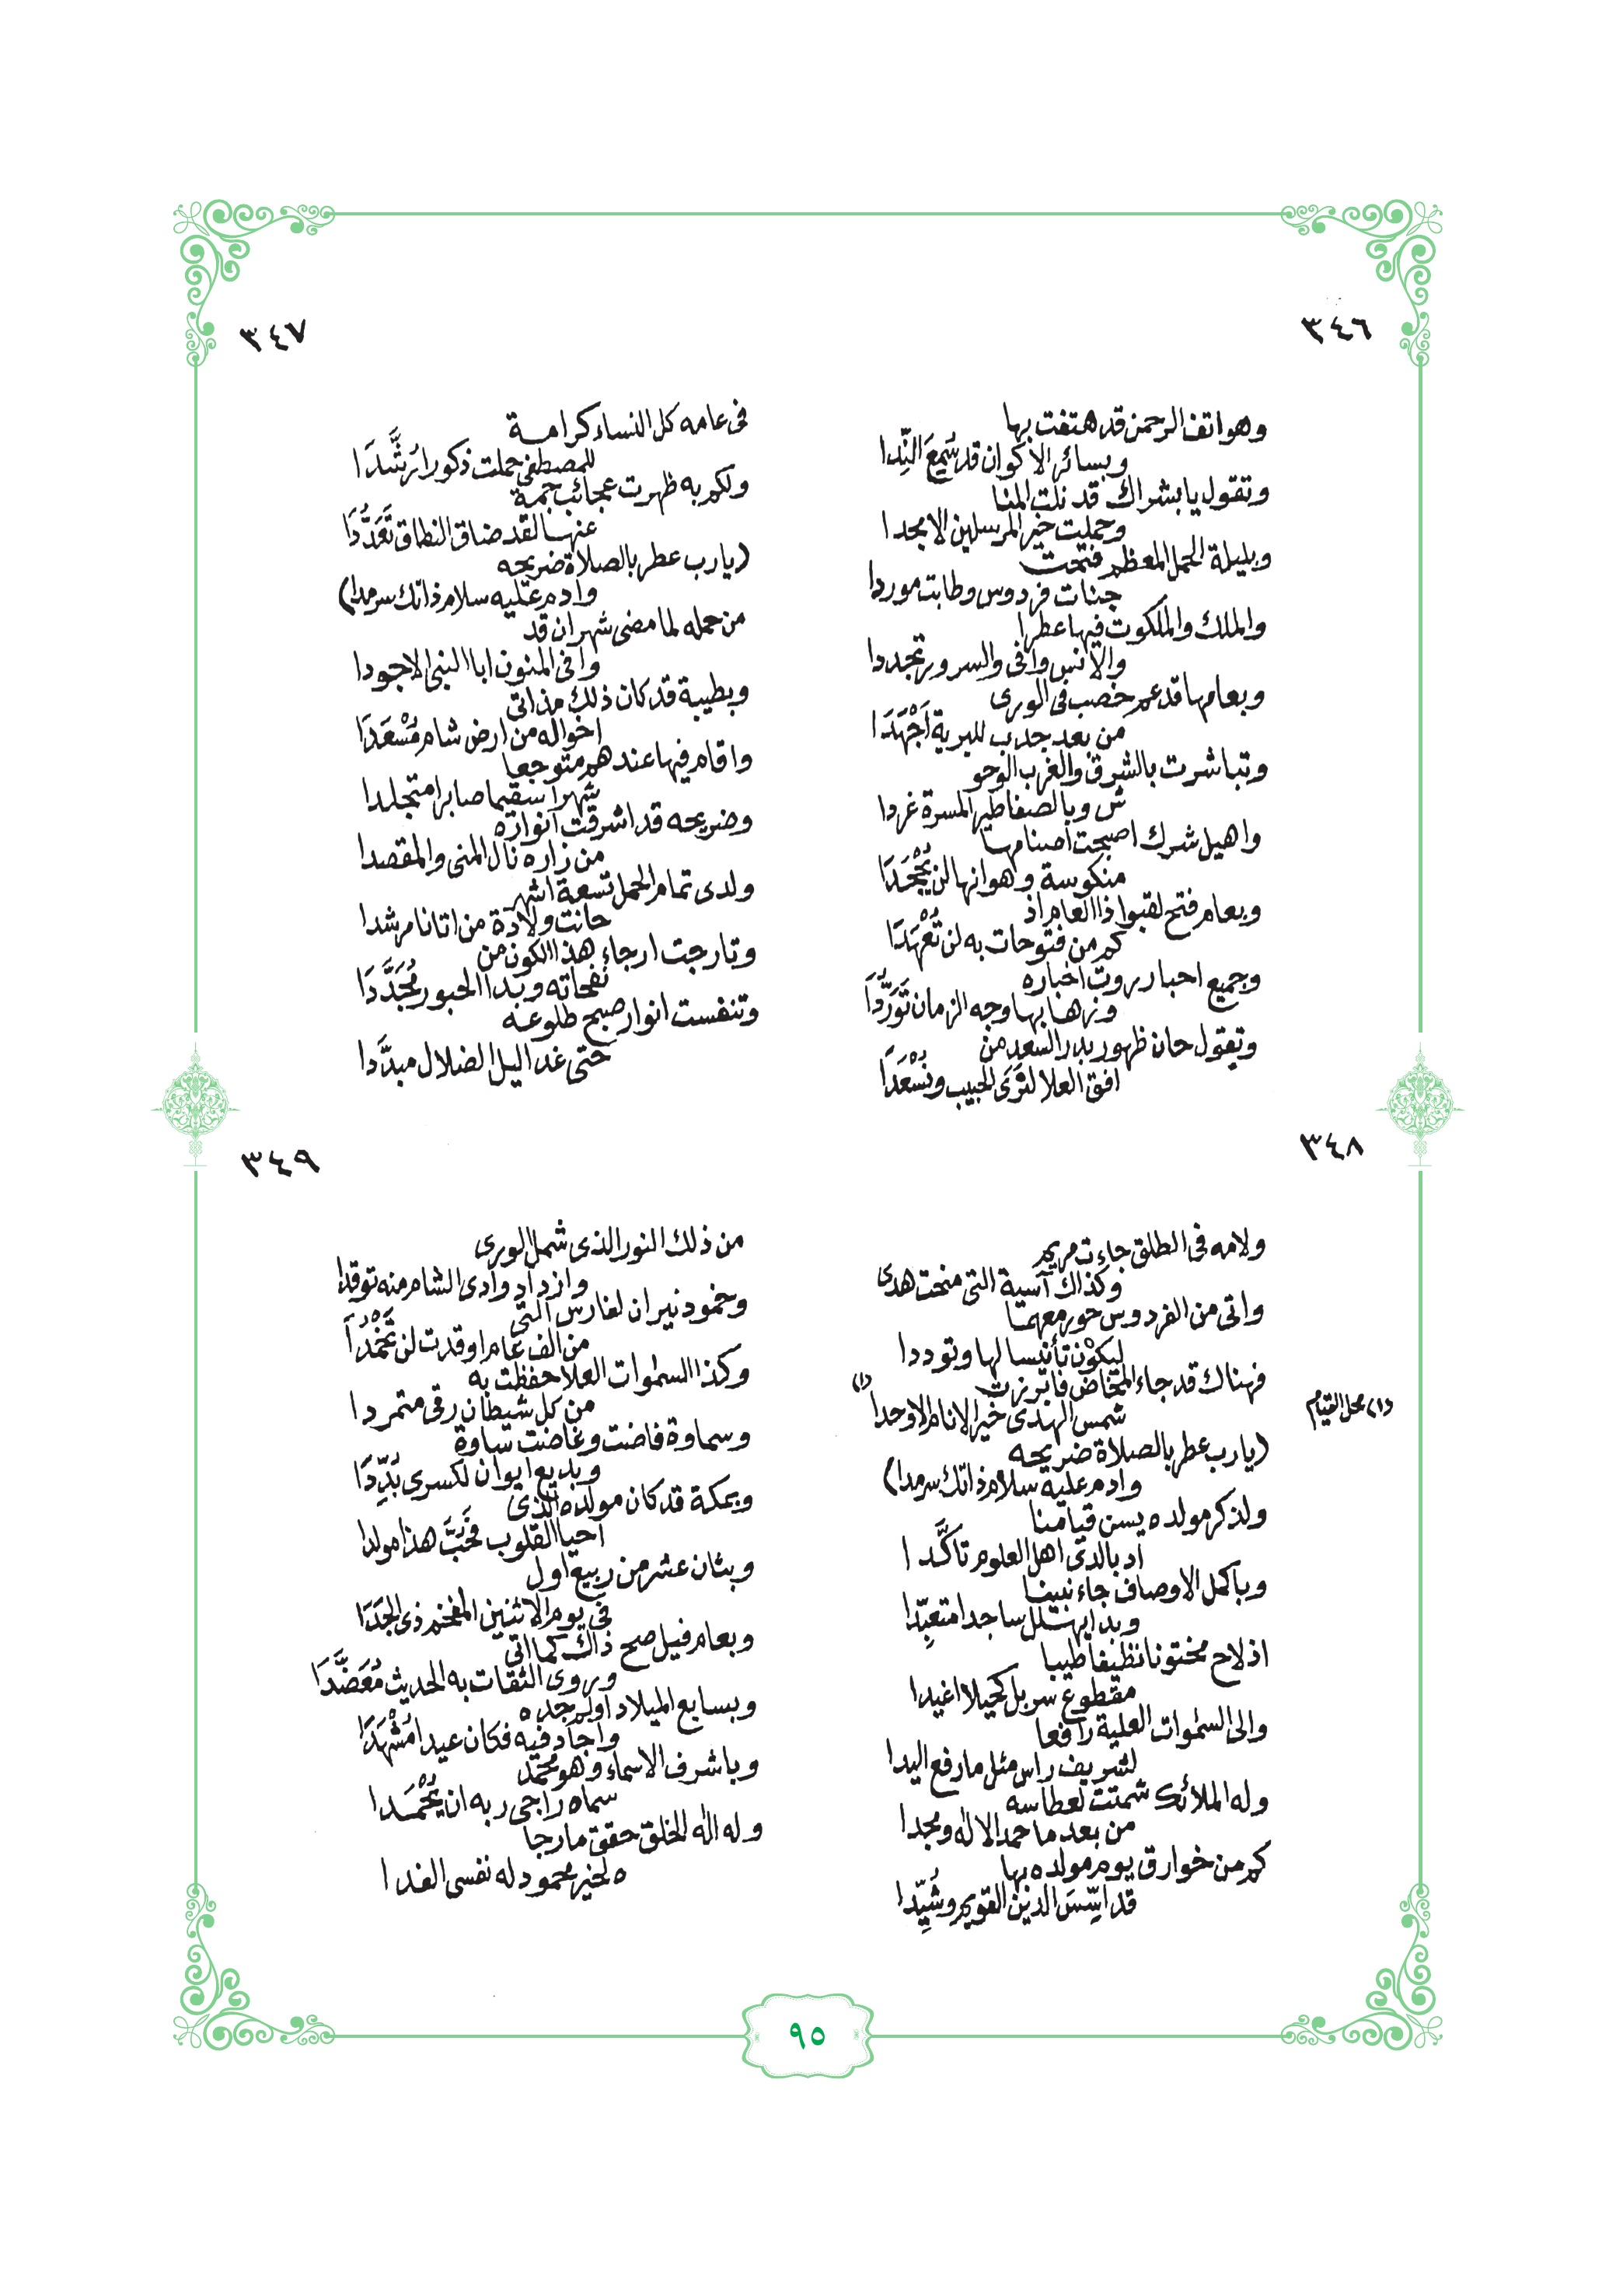 ٣٤٦
وهواتف الرحمن قد هتفت بها
وبسائر الاكوان قد سُمِعَ النِّدا
وتقول يا بشراك قد نلت المنا
وحملت خير المرسلين الامجدا
وبليلة الحمل المعظم فتحت
جنات فردوس وطابت موردا
والملك والملكوت فيها عطرا
والأنس وافى والسرور تجددا
وبعامها قد عم خصب فى الورى
من بعد جدب للبرية اَجْهَدَا
وتباشرت بالشرق والغرب الوحو
ش وبالصفا طير المسرة غردا
واهيل شرك اصبحت اصنامها
منكوسة وهوانها لن يُجْحَدَا
وبعام فتح لقبوا ذا العام اذ
كم من فتوحات به لن تُعْهَدَا
وجميع احبار روت اخباره
وزها بها وجه الزمان تَوَرُّدَا
وتقول حان ظهور بدر السعد من
افق العلا لنرَى الحبيب ونُسْعَدَا
٣٤٧
فى عامه كل النساء كرامة
للمصطفى حملت ذكورا رُشَّدَا
ولكم به ظهرت عجائب جمة
عنها لقد ضاق النطاق تَعَدُّدَا
(يا رب عطر بالصلاة ضريحه
وادم عليه سلام ذاتك سرمدا)
من حمله لما مضى شهران قد
وافى المنون ابا النبى الاجودا
وبطيبة قد كان ذلك مذ اتى
اخواله من ارض شام مُسْعَدَا
واقام فيها عندهم متوجعا
شهرا سقيما صابرا متجلدا
وضريحه قد اشرقت انواره
من زاره نال المنى والمقصدا
ولدى تمام الحمل تسعة اشهر
حانت ولادة من اتانا مرشدا
وتارجت ارجاء هذا الكون من
نفحاته وبدا الحبور مُجَدَّدَا
وتنفست انوار صبح طلوعه
حتى غدا ليل الضلال مبدَّدا
٣٤٨
ولامه فى الطلق جاءت مريم
وكذاك آسية التى منحت هدى
واتى من الفردوس حور معهما
ليكوْن تأنيسا لها وتوددا
فهناك قد جاء المخاض فابرزت
شمس الهدى خير الانام الاوحدا (١)
(١) محل القيام
(يا رب عطر بالصلاة ضريحه
وادم عليه سلام ذاتك سرمدا)
ولذكر مولده يسن قيامنا
ادبا لدى اهل العلوم تاكَّدا
وباكمل الاوصاف جاء نبينا
وبدا يهلل ساجدا متعبِّدا
اذ لاح مختونا نظيفا طيبا
مقطوع سر بل كحيلا اغيدا
والى السموات العلية رافعا
لشريف راس مثل ما رفع اليدا
وله الملائك شمتت لعطاسه
من بعد ما حمد الاله ومجدا
كم من خوارق يوم مولده بها
قد اسِّسَ الدين القويم وشُيِّدا
٣٤٩
من ذلك النور الذى شمل الورى
وازداد وادى الشام منه توقدا
وخمود نيران لفارس التى
من الف عام اوقدت لن تَخْمُدَا
وكذا السموات العلا حفظت به
من كل شيطان رقى متمردا
وسماوة فاضت وغاضت ساوة
وبديع ايوان لكسرى بُدِّدَا
وبمكة قد كان مولده الذى
احيا القلوب فحَبَّ هذا مولدا
وبثان عشر من ربيع اول
فى يوم الاثنين المفخم ذى الجَدَا
وبعام فيل صح ذاك كما اتى
وروى الثقات به الحديث مُعَضَّدَا
وبسابع الميلاد اولم جده
واجاد فيه فكان عيدا مُشْهَدَا
وباشرف الاسماء وهو محمد
سماه راجى ربه ان يُحْمَدا
وله اله الخلق حقق ما رجا
ه لخير محمود له نفسى الفدا
٩٥